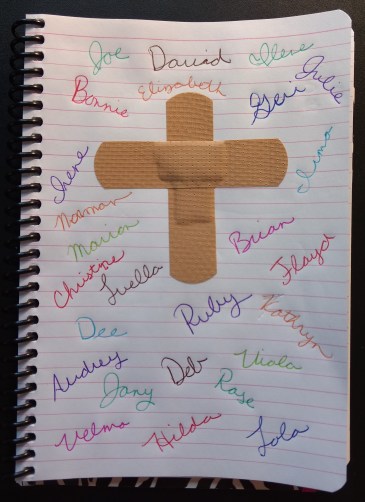 Joe David Ilene
Julie
Bonnie Elizabeth Geri
Irene Irma
Norman
Marion Brian
Christine Luella Floyd
Dee Ruby Kathryn
Audrey Deb Viola
Jany Rose
Velma Hilda Lola